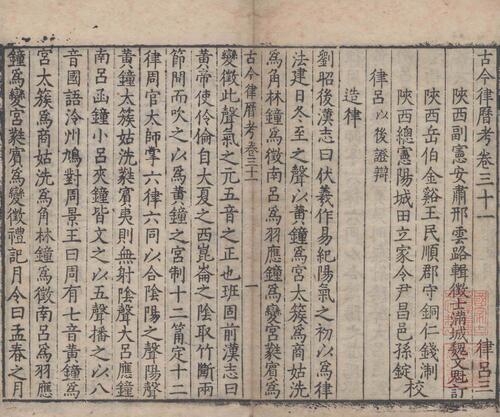 古今律曆考卷三十一 律呂三
陝西副憲安肅邢雲路輯徵士滿城魏文魁訂
陝西岳伯金谿王民順郡守銅仁錢淛
陝西總憲陽城田立家令尹昌邑孫錠 校
律呂以後證辯
造律
劉昭後漢志曰伏羲作易紀陽氣之初以爲律
法建日冬至之聲以黃鐘爲宮太簇爲商姑洗
爲角林鐘爲徵南呂爲羽應鐘爲變宮蕤賓爲
古今律曆考卷三十一 一
變徵此聲氣之元五音之正也班固前漢志曰
黃帝使伶倫自大夏之西崑崙之陰取竹斷兩
節間而吹之以爲黃鐘之宮制十二筩定十二
律周官大師掌六律六同以合陰陽之聲陽聲
黃鐘太簇姑洗蕤賓夷則無射陰聲大呂應鐘
南呂函鐘小呂夾鐘皆文之以五聲播之以八
音國語泠州鳩對周景王曰有七音黃鐘爲
宮太簇爲商姑洗爲角林鐘爲徵南呂爲羽應
鐘爲變宮蕤賓爲變徵禮記月令曰孟春之月